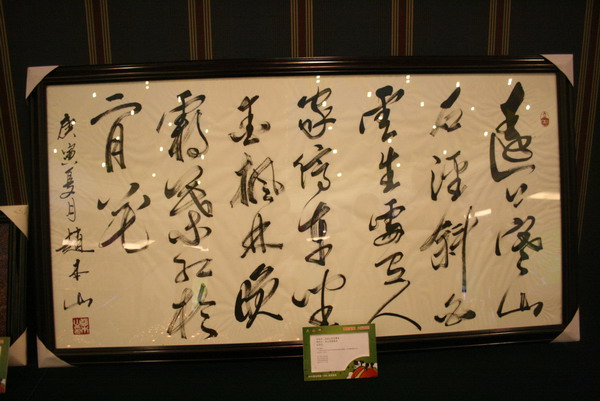 遠上寒山
石徑斜白
雲生處有人
家停車坐
愛楓林晚
霜葉紅於
二月花
庚寅夏月趙本山